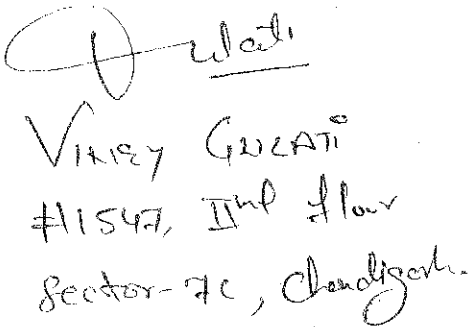 Gulati
VINEY GULATI
#1547, IInd floor
Sector-7C, Chandigarh.